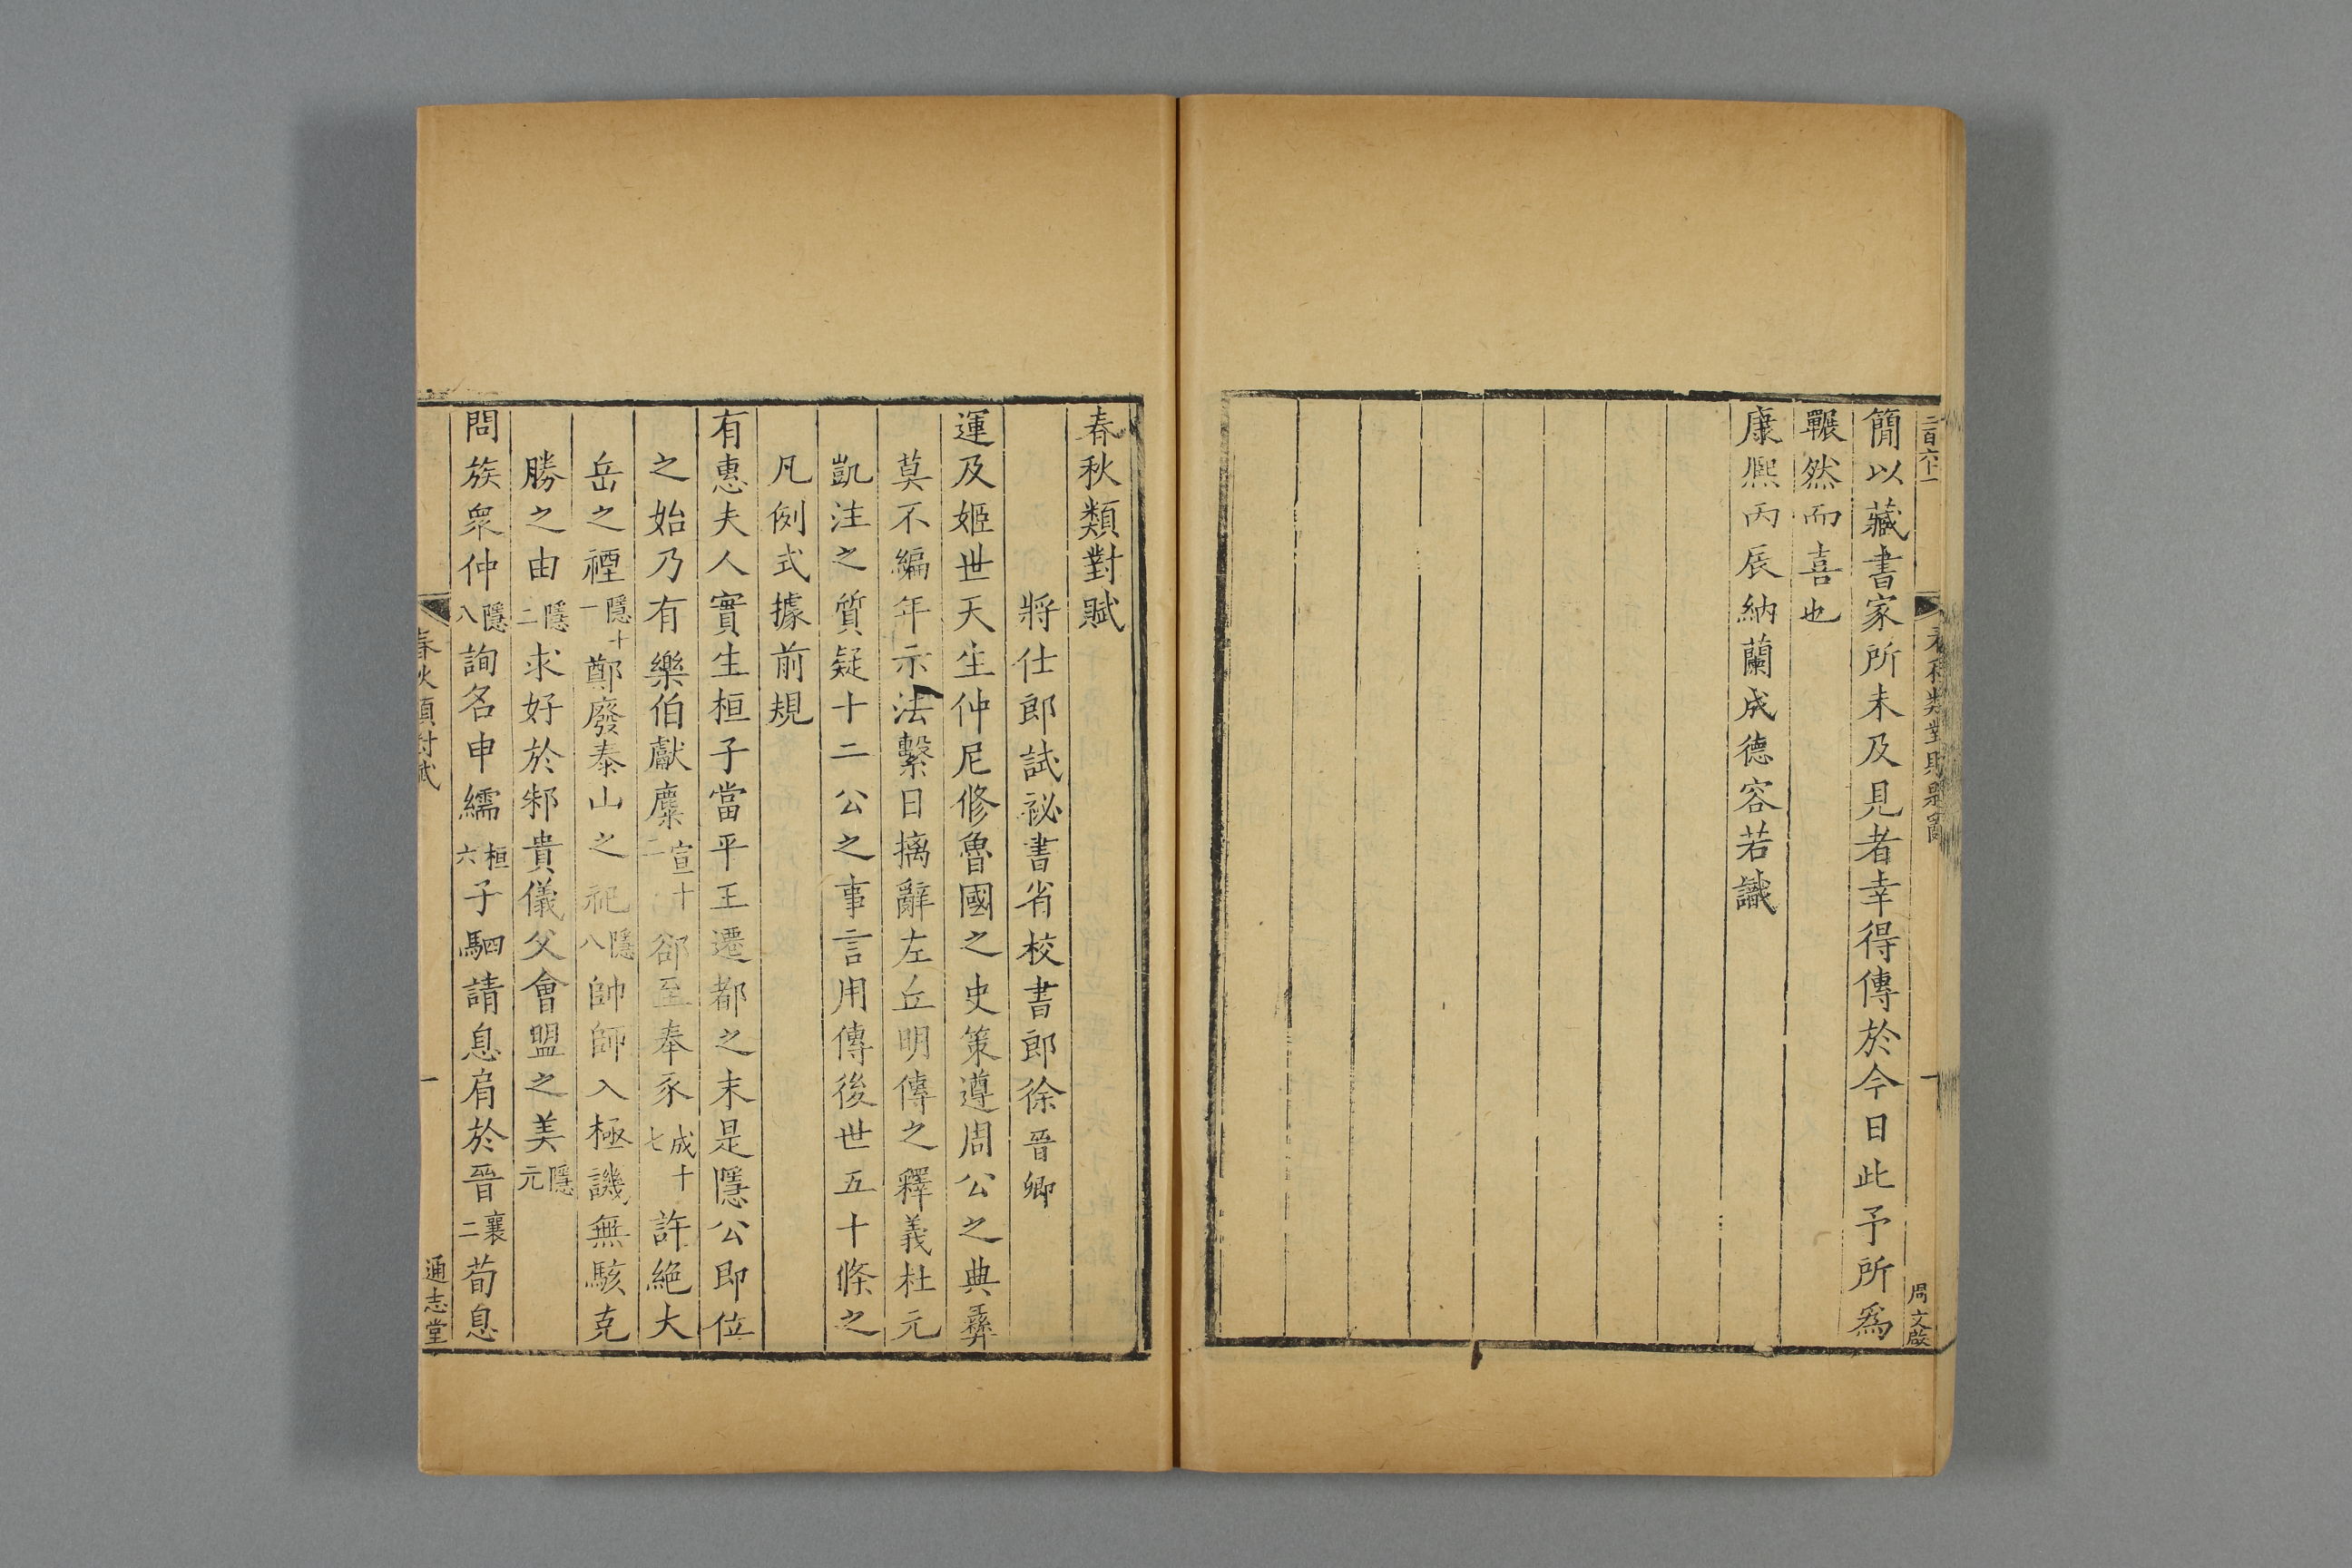 二百六十一
春秋類對賦
周文啟
簡以藏書家所未及見者幸得傳於今日此予所爲
囅然而喜也
康熙丙辰納蘭成德容若識
春秋類對賦
將仕郎試祕書省校書郎徐晉卿
運及姬世天生仲尼修魯國之史策遵周公之典彝
莫不編年示法繫日摛辭左丘明傳之釋義杜元
凱注之質疑十二公之事言用傳後世五十條之
凡例式據前規
有惠夫人實生桓子當平王遷都之末是隱公即位
之始乃有樂伯獻麋宣十二郤至奉豕成十七許絶大
岳之禋隱十一鄭廢泰山之祀隱八帥師入極譏無駭克
勝之由隱二求好於邾貴儀父會盟之美隱元
問族衆仲隱八詢名申繻桓六子駟請息肩於晉襄二荀息
春秋類對賦
一
通志堂